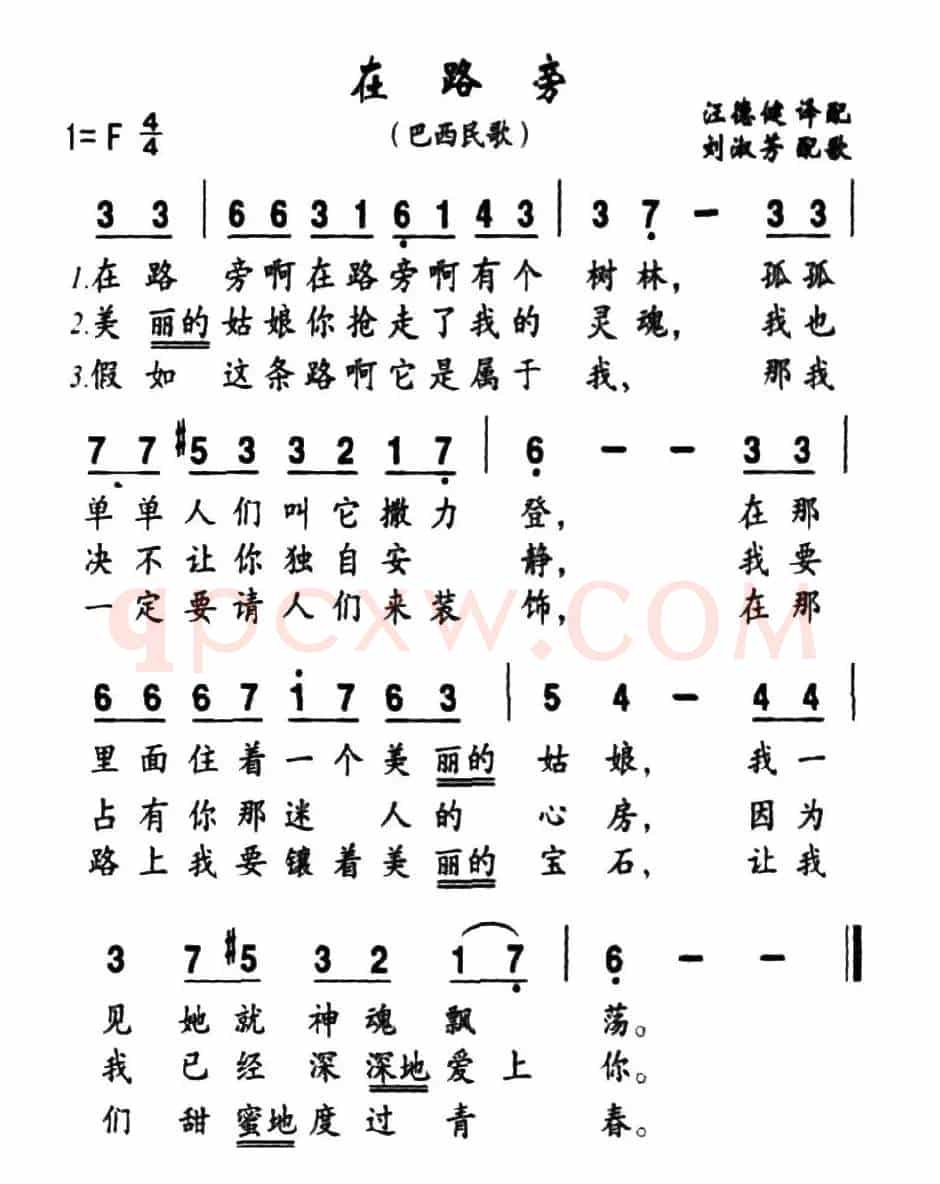 在路旁
1=F 4/4
(巴西民歌)
汪德健 译配
刘淑芳 配歌
3 3 | 6 6 3 1 6̣ 1 4 3 | 3 7̣ - 3 3 |
1.在路 旁啊在路旁啊有个 树林, 孤孤
2.美丽的姑娘你抢走了我的 灵魂, 我也
3.假如 这条路啊它是属于 我, 那我
7̣ 7̣ #5 3 3 2 1 7̣ | 6̣ - - 3 3 |
单单人们叫它撒力 登, 在那
决不让你独自安 静, 我要
一定要请人们来装 饰, 在那
qpcxw.COM
6 6 6 7 i 7 6 3 | 5 4 - 4 4 |
里面住着一个美丽的 姑娘, 我一
占有你那迷 人的 心房, 因为
路上我要镶着美丽的 宝石, 让我
3 7 #5 3 2 1 7̣ | 6̣ - - ‖
见 她就 神魂 飘 荡。
我 已经 深深地爱上 你。
们 甜蜜地度过 青 春。